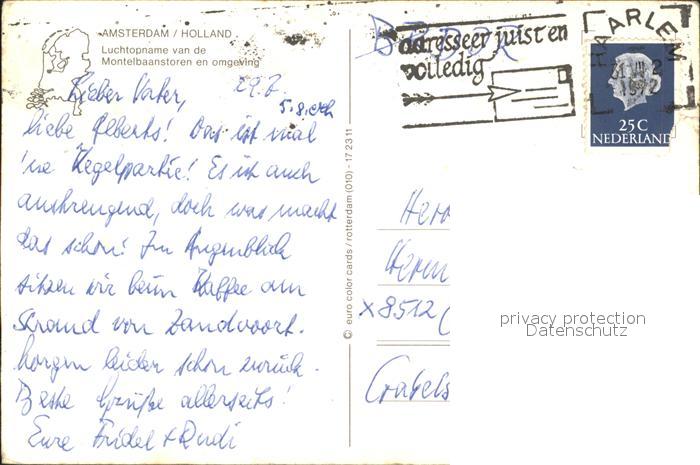 AMSTERDAM / HOLLAND
Luchtopname van de
Montelbaanstoren en omgeving
Lieber Vater, 29.7.
liebe Alberts! Das ist mal
'ne Kegelpartie! Es ist auch
anstrengend, doch was macht
das schon! Im Augenblick
sitzen wir beim Kaffee am
Strand von Zandvoort.
Morgen leider schon zurück.
Beste Grüße allerseits!
Eure Fridel + Rudi
© euro color cards / rotterdam (010) - 17 23 11
adresseer juist en
volledig
HAARLEM
1972
25 C
NEDERLAND
Herr
Herm
x 8512 (
privacy protection
Datenschutz